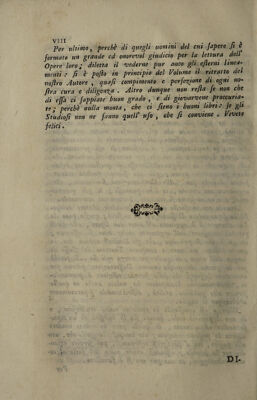 VIII
Per ultimo, perchè di quegli uomini del cui sapere si è
formato un grande ed onorevol giudicio per la lettura dell'
Opere loro; diletta il vederne pur anco gli esterni linea-
menti: si è posto in principio del Volume il ritratto del
nostro Autore, quasi compimento e perfezione di ogni no-
stra cura e diligenza. Altro dunque non resta se non che
di essa ci sappiate buon grado, e di giovarvene procuria-
te; perchè nulla monta, che ci sieno i buoni libri: se gli
Studiosi non ne fanno quell' uso, che si conviene. Vivete
felici.
DI-